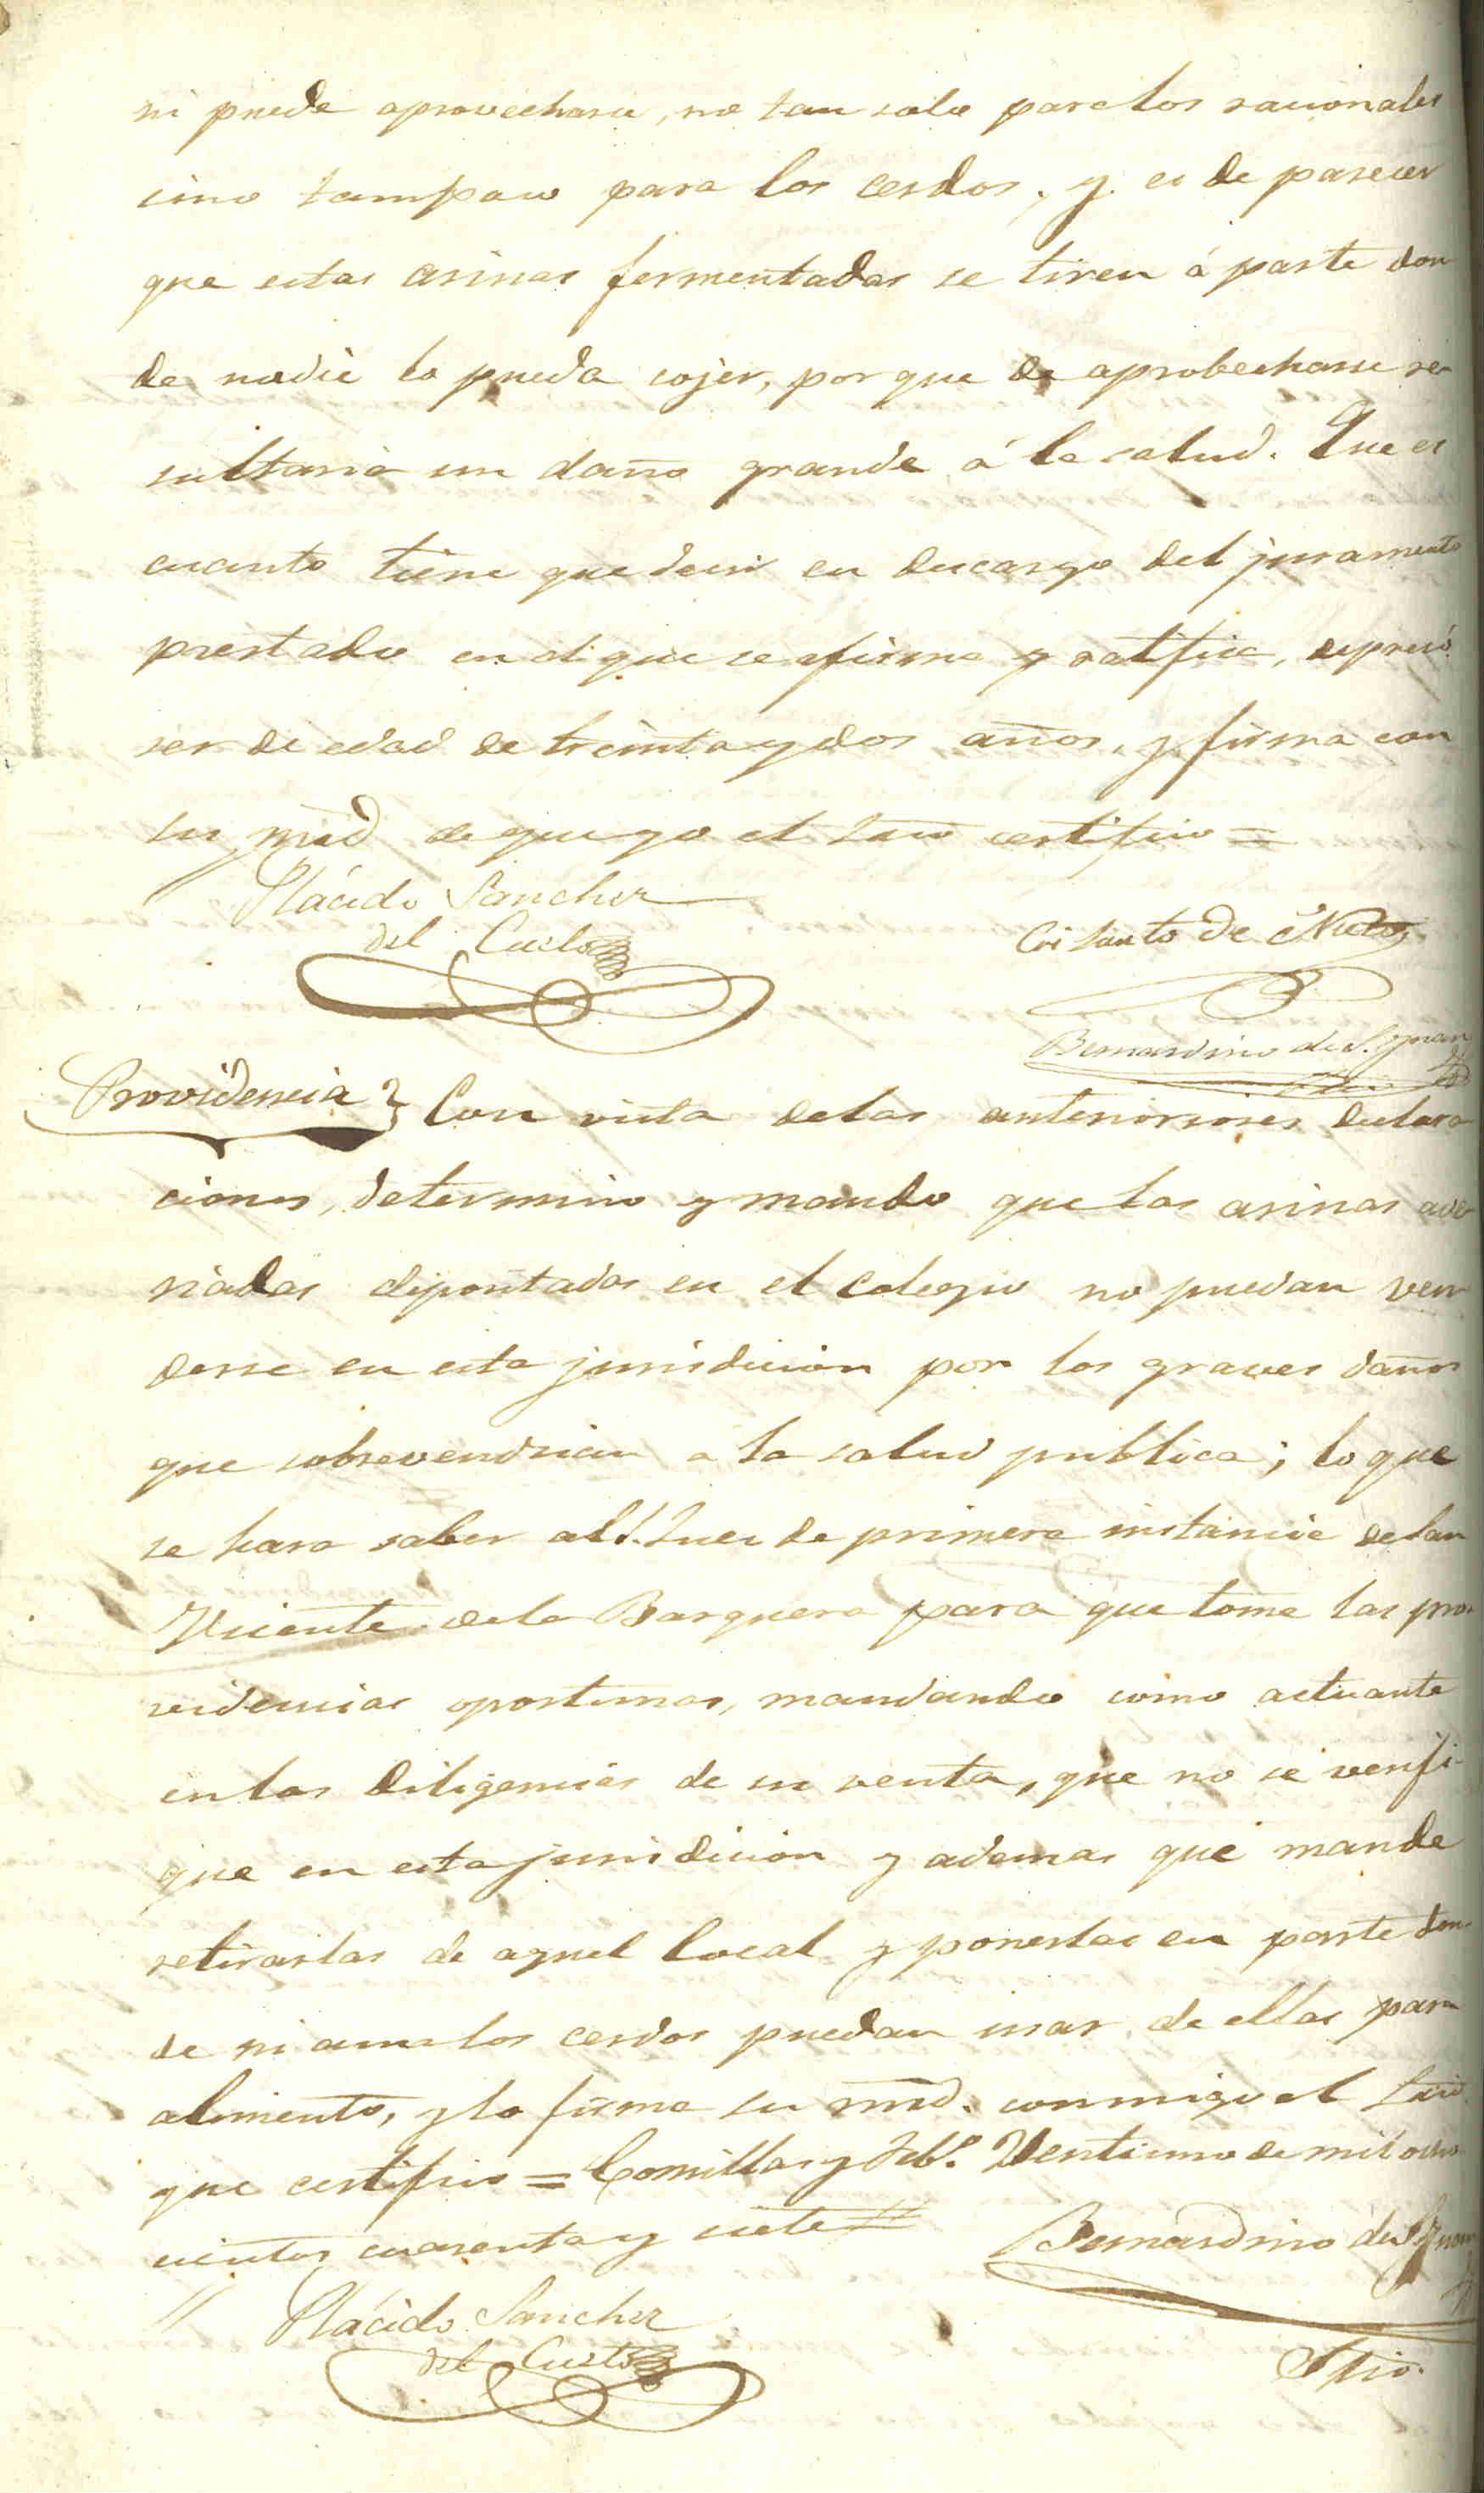 ni puede aprovecharse, no tan solo para los racionales
sino tampoco para los cerdos, y es de parecer
que estas arinas fermentadas se tiren á parte don
de nadie lo pueda cojer, por que de aprobecharse re
sultaria un daño grande á la salud. Que es
cuanto tiene que decir en descargo del juramento
prestado en el que se afirma y ratifica, espresó
ser de edad de treinta y dos años, y firma con
su mrd de que yo el Srio certifico =
Plácido Sanchez
del Cueto
Crisanto de
Bernardino de S. Juan
Srio
Providencia } Con vista de las anteriorores declara
ciones, determino y mando que las arinas ave
riadas depositadas en el Colegio no puedan ven
derse en esta jurisdicion por los graves daños
que sobrevendrian a la salud publica; lo que
se hara saber al S. Juez de primera instancia de San
Vicente de la Barquera para que tome las pro
videncias oportunas, mandando como actuante
en las diligencias de su venta, que no se verifi-
que en esta jurisdicion y ademas que mande
retirarlas de aquel local y ponerlas en parte don
de ni aun los cerdos puedan usar de ellas para
alimento, y lo firma su mrd. conmigo el Srio
que certifico = Comillas y Feb.º Ventiuno de mil ocho
cientos cuarenta y siete =
Bernardino de S. Juan
Plácido Sanchez
del Cueto
Srio.